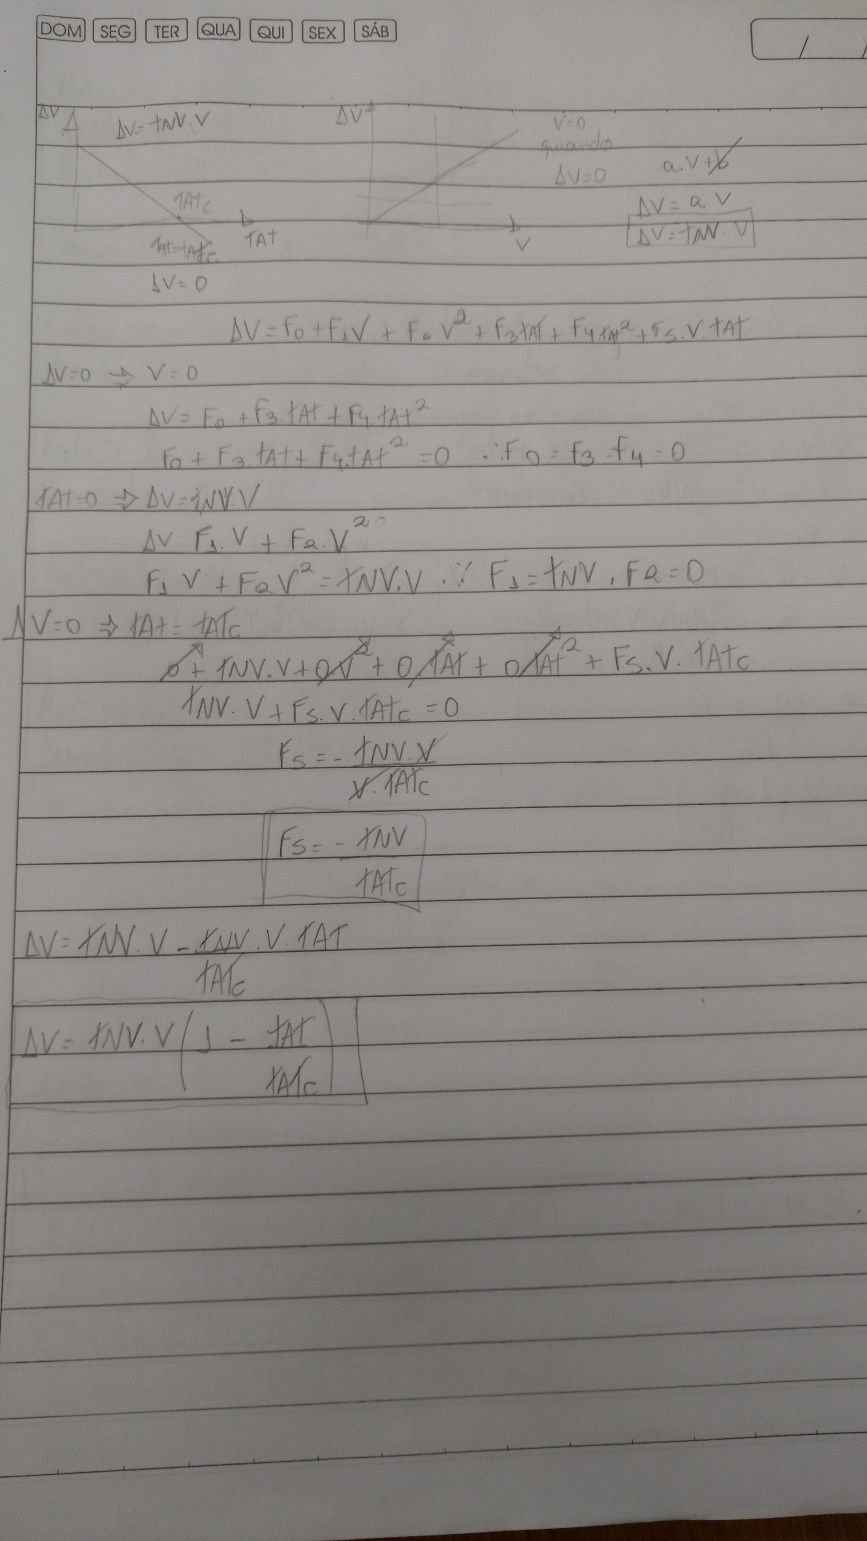 DOM SEG TER QUA QUI SEX SÁB
/ /
ΔV ΔV = tNV.V
tATc
tAT
tAt=tATc
ΔV=0
ΔV
V
V=0
quando
ΔV=0
a.V+b
ΔV = a.V
ΔV=tNV.V
ΔV=F0+F1V + F0V²+F3tAT+F4tAt²+F5.V.tAT
ΔV=0 ⇒ V=0
ΔV= F0+F3.tAt+F4.tAt²
F0+F3.tAt+F4.tAt²=0 ∴F0=F3=F4=0
tAt=0 ⇒ ΔV=tNV.V
ΔV F1.V + F2.V²
F1V+F2V²=tNV.V ∵ F1=tNV, F2=0
ΔV=0 ⇒ tAt=tATc
0+tNV.V+0V²+0tAT+0tAt²+F5.V.tATc
tNV.V+F5.V.tATc=0
F5=- tNV.V
V.tATc
F5=- tNV
tATc
ΔV=tNV.V-tNV.V.tAT
tATc
ΔV=tNV.V(1 - tAt
tATc)